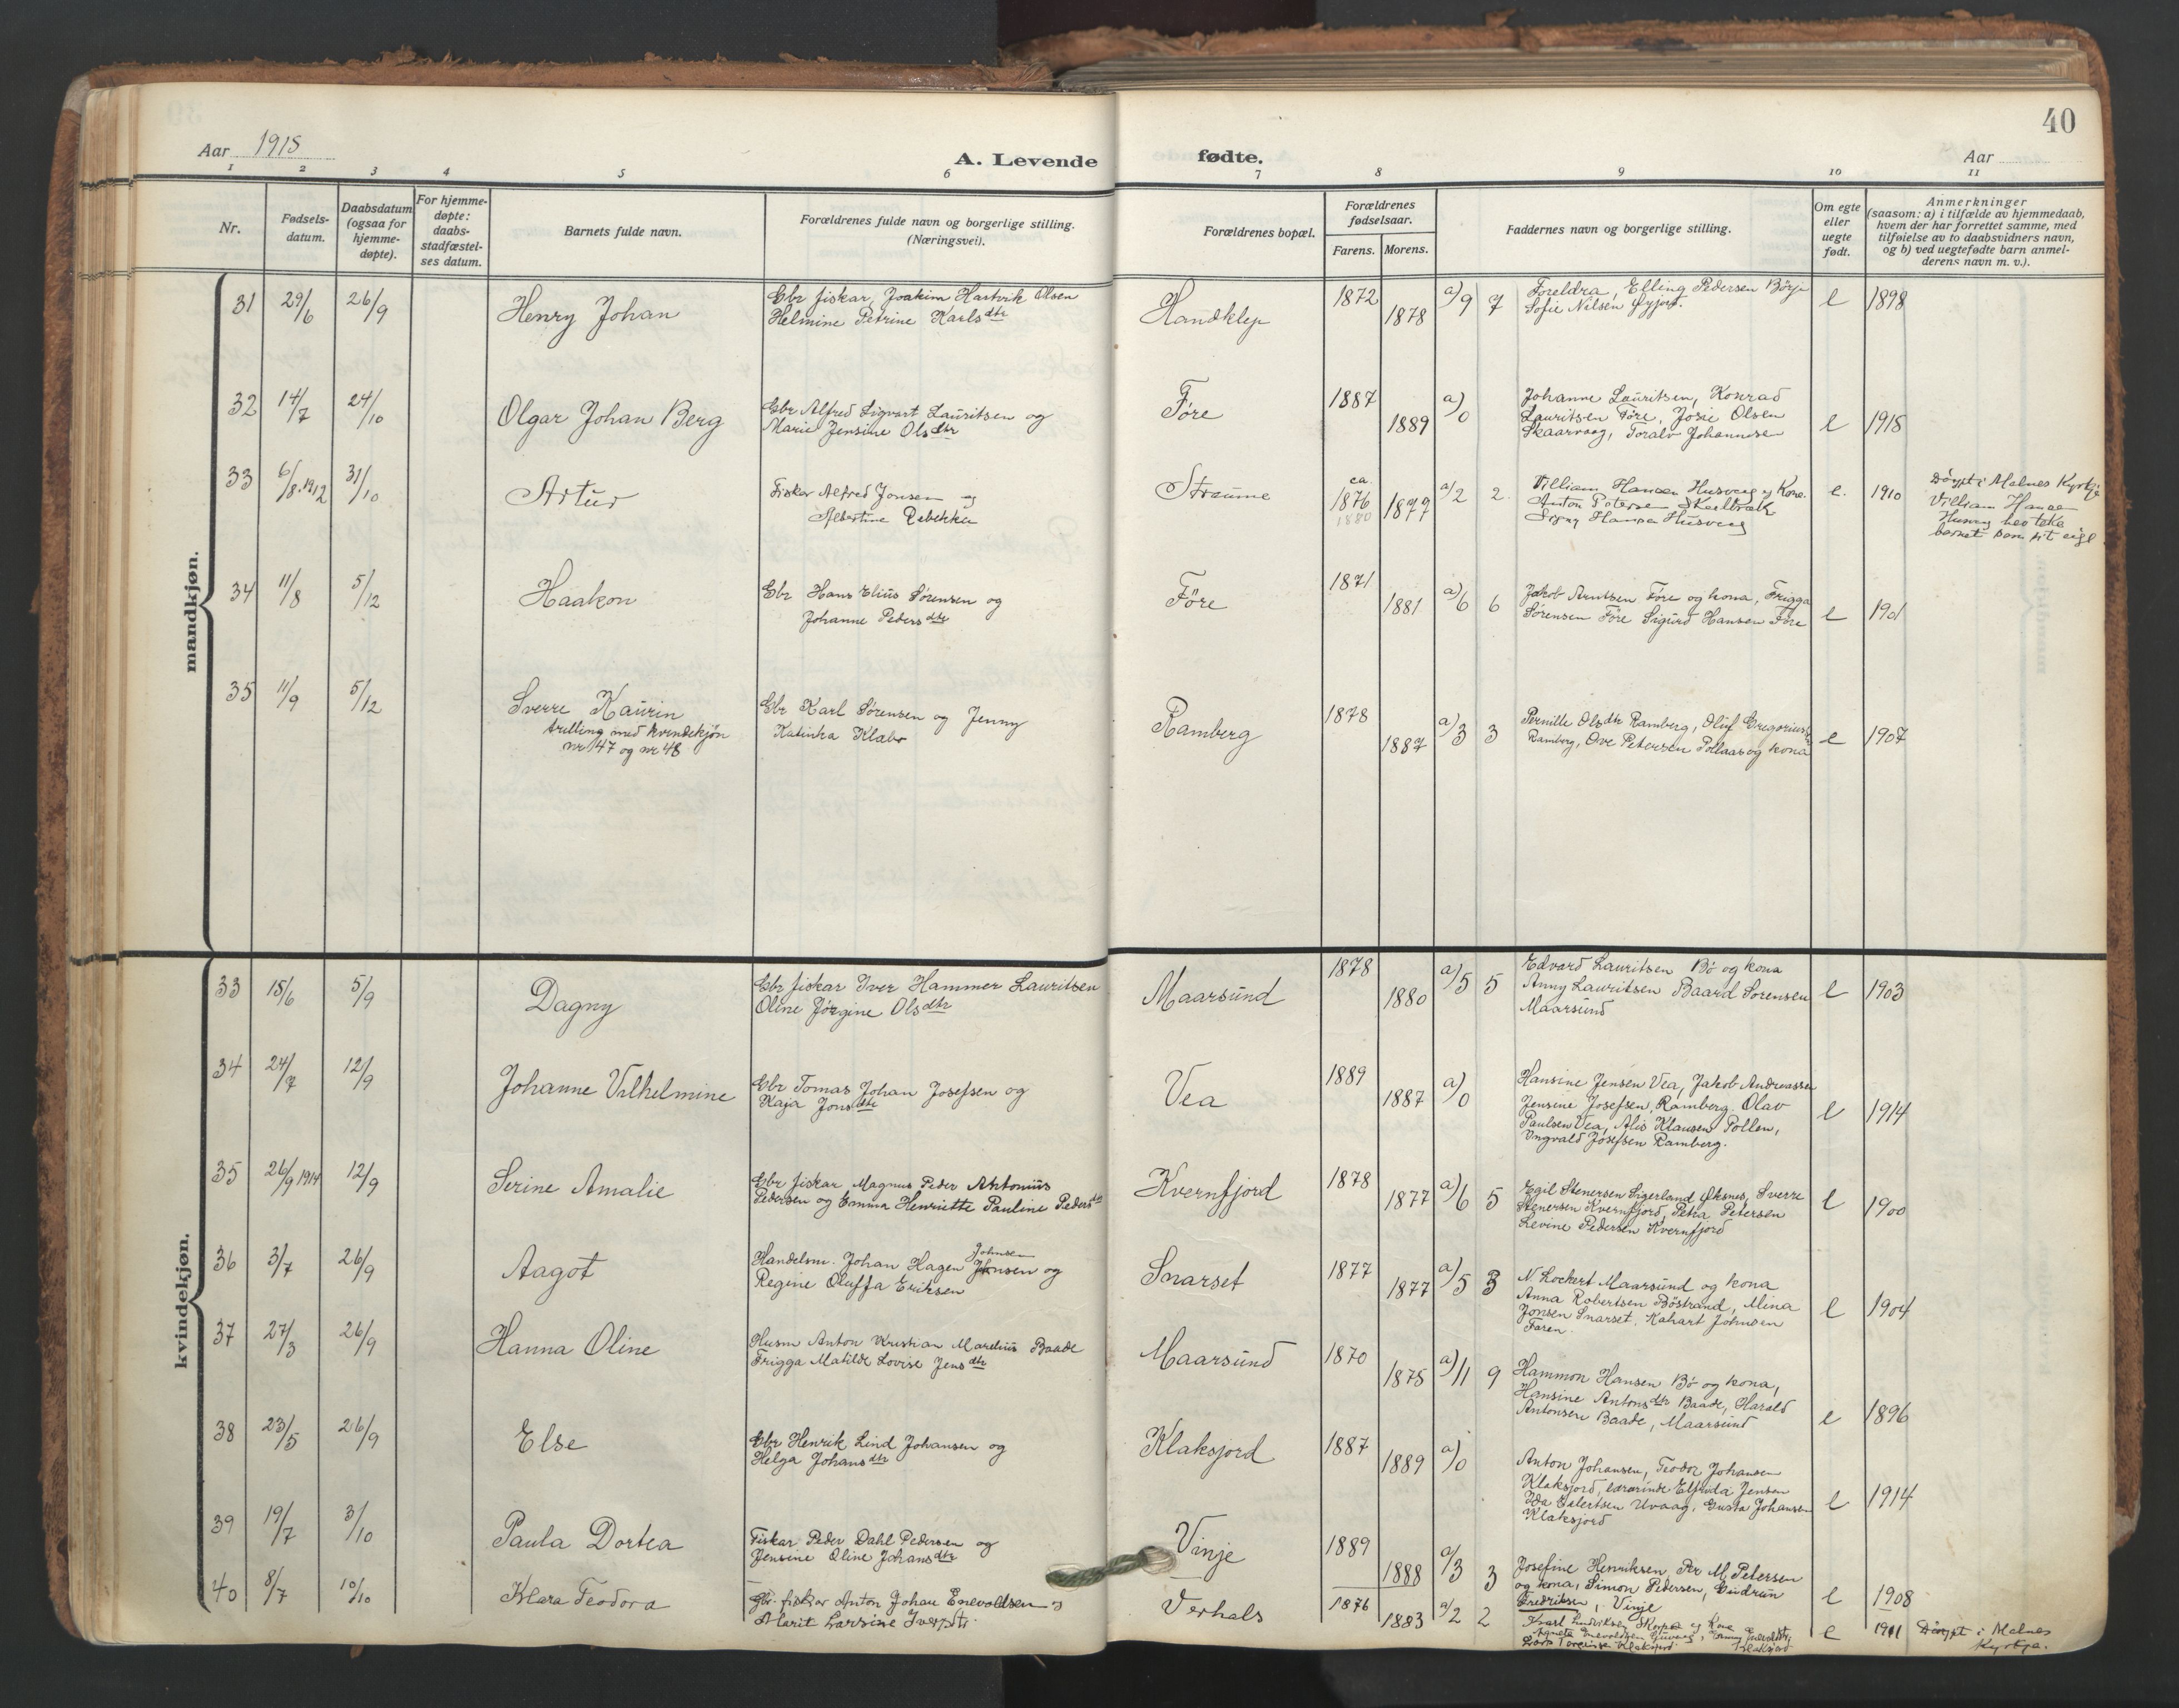 40
Aar 1915
A. Levende
fødte.
Aar
1 2 3 4 5 6 7 8 9 10 11
Nr.
Fødsels-
datum.
Daabsdatum
(ogsaa for
hjemme-
døpte).
For hjemme-
døpte:
daabs-
stadfæstel-
ses datum.
Barnets fulde navn.
Forældrenes fulde navn og borgerlige stilling.
(Næringsvei).
Forældrenes bopæl.
Forældrenes
fødselsaar.
Farens. Morens.
Faddernes navn og borgerlige stilling.
Om egte
eller
uegte
født.
Anmerkninger
(saasom: a) i tilfælde av hjemmedaab,
hvem der har forrettet samme, med
tilføielse av to daabsvidners navn,
og b) ved uegtefødte barn anmel-
derens navn m. v.).
mandkjøn.
31 29/6 26/9 Henry Johan
Gbr fiskar, Joakim Hartvik Olsen
Helmine Petrine Karlsdtr
Handklep 1872 1878 a) 9 7
Foreldra, Elling Pedersen Börje
Sofie Nilsen
e 1898
32 14/7 24/10 Olgar Johan Berg
Gbr Alfred Sigvart Lauritsen og
Marie Jensine Olsdtr
Føre 1887 1889 a) 0
Johanne Lauritsen, Konrad
Lauritsen Føre, Josie Olsen
Skaarvaag, Toralv Johannesen
e 1915
33 6/8.1912 31/10 Artur
Fisker Alfred Jonsen og
Albertine Rebekka
Straume ca. 1876 1880 1877 a/2 2.
Villiam Hansen Husvaag og Kone.
Anton Petersen Skaelbræk
Signy Hansen Husvaag
e. 1910
Döypt i Malnes Kyrkje
Villiam Hansen
Husvag hev teke
barnet som sit eige
34 11/8 5/12 Haakon
Gbr Hans Elius Sørensen og
Johanne Pedersdtr
Före 1871 1881 a) 6 6
Jakob Arntsen Före og kona, Frigga
Sørensen Före Sigurd Hansen Före
e 1901
35 11/9 5/12 Sverre Kaurin
trilling med kvendekjøn
nr 47 og nr 48
Gbr Karl Sørensen og Jenny
Katinka Klæbo
Ramberg 1878 1887 a) 3 3
Pernille Olsdtr Ramberg, Oluf Gregoriussen
Ramberg, Ove Petersen Pollaas og kona
e 1907
kvindekjøn.
33 15/6 5/9 Dagny
Gbr fiskar Iver Hammer Lauritsen
Oline Jørgine Olsdtr
Maarsund 1878 1880 a) 5 5
Edvard Lauritsen Bö og kona
Anny Lauritsen Baard Sorensen
Maarsund
e 1903
34 24/7 12/9 Johanne Vilhelmine
Gbr Tomas Johan Josefsen og
Kaja Jonsdtr
Vea 1889 1887 a) 0
Hansine Jensen Vea, Jakob Andreassen
Jensine Josefsen, Ramberg. Olav
Paulsen Vea, Alis Klausen Pollen,
Yngvald Josefsen Ramberg.
e 1914
35 26/9 1914 12/9 Serine Amalie
Gbr fiskar Magnus Peder Antonius
Pedersen og Emma Henriette Pauline Pedersdtr
Kvernfjord 1878 1877 a) 6 5
Egil Stenersen Sigerland Øksnes, Sverre
Stenersen Kvernfjord, Petra Petersen
Levine Pedersen Kvernfjord
e 1900
36 3/7 26/9 Aagot
Handelsm. Johan Hagen Johnsen og
Regine Oluffa Eriksen
Snarset 1877 1877 a) 5 3
N. Lockert Maarsund og kona
Anna Robertsen Böstrand, Alina
Jonsen Snarset, Kahart Johnsen
Faren.
e 1904
37 27/3 26/9 Hanna Oline
Husm Anton Kristian Mardius Baade
Frigga Matilde Lovise Jensdtr
Maarsund 1870 1875 a) 11 9
Hammon Hansen Bö og kona,
Hansine Antonsdtr Baade, Harald
Antonsen Baade, Maarsund
e 1896
38 23/5 26/9 Else
Gbr Henrik Lind Johansen og
Helga Johansdtr
Klaksjord 1887 1889 a) 0
Anton Johansen, Teodor Johansen
Klaksjord, lærarinde Elfrida Jensen
Ida Eilertsen Uvaag, Gusta Johansen
Klaksjord
e 1914
39 19/7 3/10 Paula Dortea
Fiskar Peder Dahl Pedersen og
Jensine Oline Johansdtr
Vinje 1889 1888 a/3 3
Josefine Henriksen Per M. Petersen
og kona, Simon Pedersen, Gudrun
Fredriksen, Vinje
e 1908
40 8/7 10/10 Klara Teodora
Gbr. fisker Anton Johan Enevoldsen og
Marit Larsine Iversdtr.
Verhals 1876 1883 a/2 2
e 1911
Döypt i Malnes
Kyrkja.